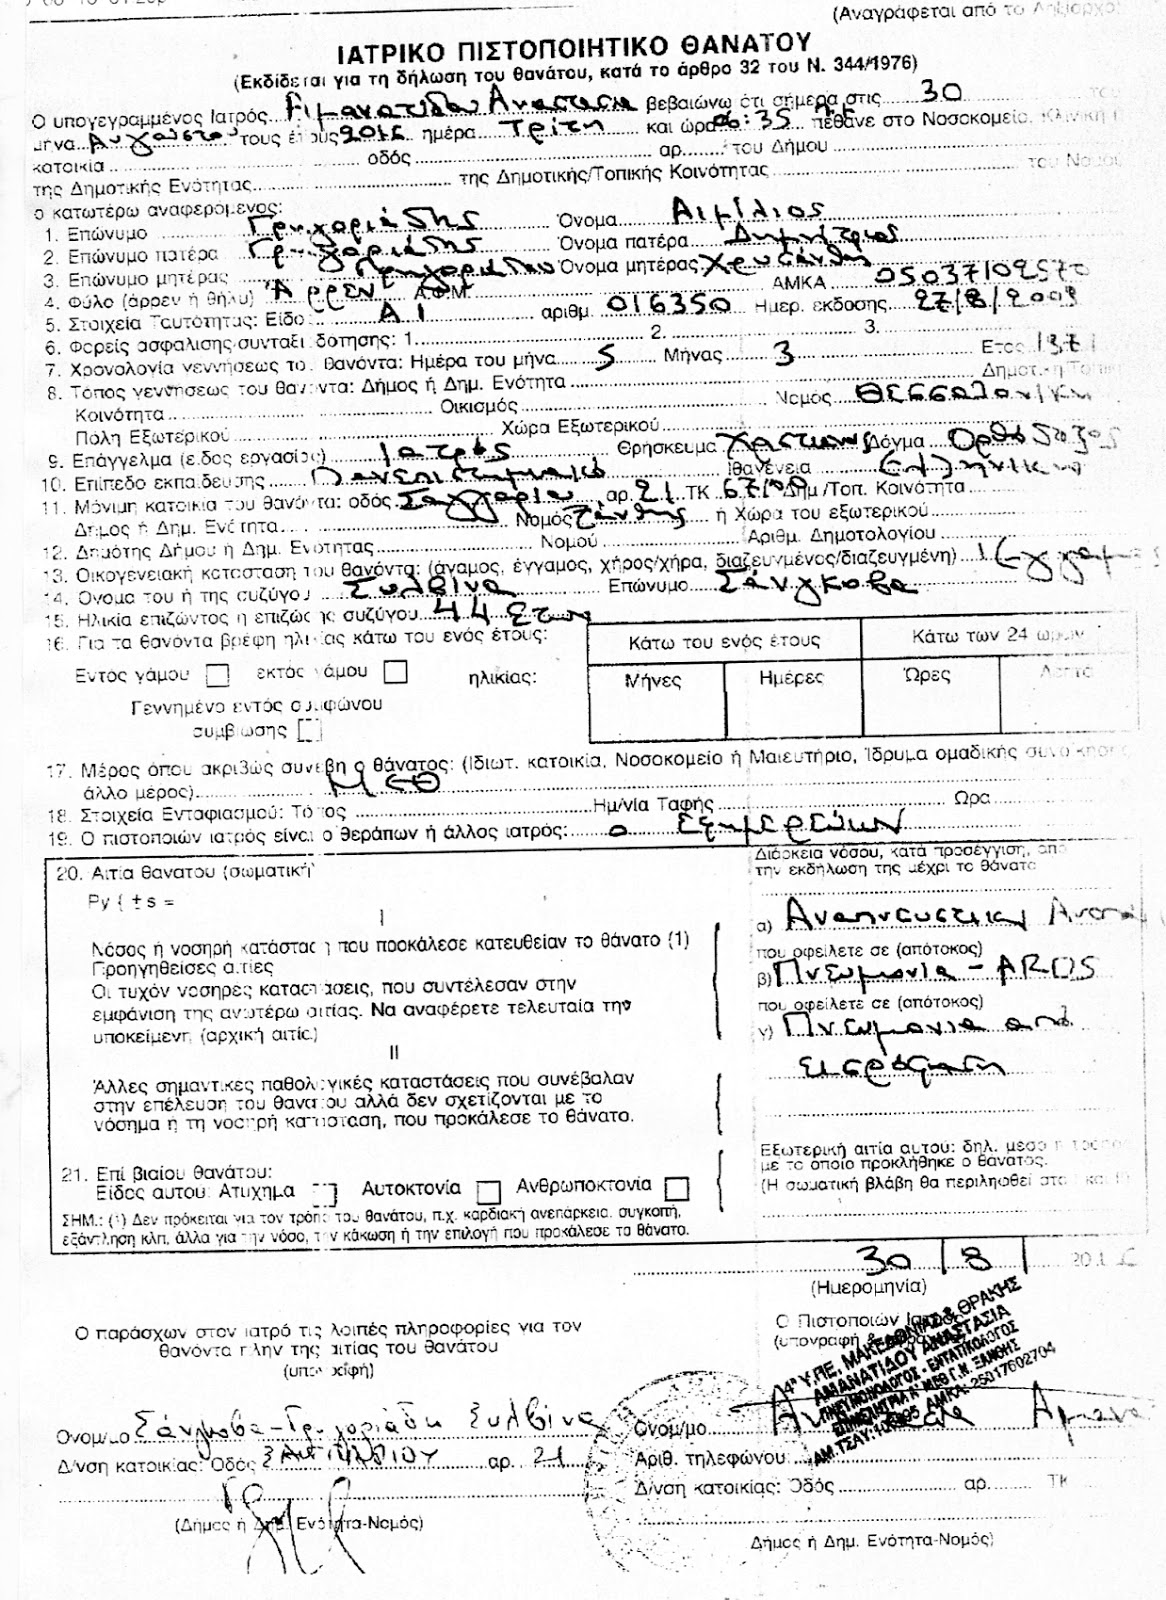 (Αναγράφεται από το Ληξίαρχο
ΙΑΤΡΙΚΟ ΠΙΣΤΟΠΟΙΗΤΙΚΟ ΘΑΝΑΤΟΥ
(Εκδίδεται για τη δήλωση του θανάτου, κατά το άρθρο 32 του Ν. 344/1976)
Ο υπογεγραμμένος Ιατρός Αμανατίδου Αναστασία βεβαιώνω ότι σήμερα στις 30 του
μήνα Αυγούστου τους έτους 2016 ημέρα Τρίτη και ώρα 06:35 πέθανε στο Νοσοκομείο, Κλινική
κατοικία οδός αρ. του Δήμου
της Δημοτικής Ενότητας της Δημοτικής/Τοπικής Κοινότητας του Νομού
ο κατωτέρω αναφερόμενος:
1. Επώνυμο Γρηγοριάδης Όνομα Αιμίλιος
2. Επώνυμο πατέρα Γρηγοριάδης Όνομα πατέρα Δημήτριος
3. Επώνυμο μητέρας Γρηγοριάδου Όνομα μητέρας Χρυσάνθη
4. Φύλο (άρρεν ή θήλυ) Άρρεν Α.Φ.Μ. ΑΜΚΑ 05037102570
5. Στοιχεία Ταυτότητας: Είδος ΑΙ αριθμ. 016350 Ημερ. εκδοσης 27/8/2009
6. Φορείς ασφαλισης/συνταξιοδότησης: 1. 2. 3.
7. Χρονολογία γεννήσεως του θανόντα: Ημέρα του μήνα 5 Μήνας 3 Ετος 1971
8. Τόπος γεννήσεως του θανόντα: Δήμος ή Δημ. Ενότητα Δημοτ.
Κοινότητα Οικισμός Νομός Θεσσαλονίκη
Πόλη Εξωτερικού Χώρα Εξωτερικού
9. Επάγγελμα (είδος εργασίας) Ιατρός Θρήσκευμα Δόγμα Ορθόδοξος
10. Επίπεδο εκπαίδευσης Πανεπιστημιακό Ιθαγένεια Ελληνική
11. Μόνιμη κατοικία του θανόντα: οδός Σαγγαρίου αρ. 21 ΤΚ 67100 Δημ/Τοπ. Κοινότητα
Δημος ή Δημ. Ενότητα Νομός Ξάνθης ή Χώρα του εξωτερικού
12. Δημότης Δήμου ή Δημ. Ενότητας Νομού Αριθμ. Δημοτολογίου
13. Οικογενειακή κατάσταση του θανόντα: (άγαμος, έγγαμος, χήρος/χήρα, διαζευγμένος/διαζευγμένη) Έγγαμος
14. Όνομα του ή της συζύγου Συλβίνα Επώνυμο Σάνγκοβα
15. Ηλικία επιζώντος η επιζώσης συζύγου 44 Ετών
16. Για τα θανόντα βρέφη ηλικίας κάτω του ενός έτους:
Κάτω του ενός έτους Κάτω των 24 ωρών
Εντός γάμου εκτός γάμου ηλικίας: Μήνες Ημέρες Ώρες Λεπτά
Γεννημένο εντός συμφώνου
συμβίωσης
17. Μέρος όπου ακριβώς συνέβη ο θάνατος: (Ιδιωτ. κατοικία, Νοσοκομείο ή Μαιευτήριο, Ίδρυμα ομαδικής συνοίκησης
άλλο μέρος) ΜΕΘ
18. Στοιχεία Ενταφιασμού: Τόπος Ημ/νία Ταφής Ωρα
19. Ο πιστοποιών ιατρός είναι ο θεράπων ή άλλος ιατρός: ο Εφημερεύων
20. Αιτία θανατου (σωματική)
Py { ± s =
Διάρκεια νόσου, κατά προσέγγιση, από
την εκδήλωση της μέχρι το θάνατο
I
Νόσος ή νοσηρή κατάσταση που προκάλεσε κατευθείαν το θάνατο (1)
Προηγηθείσες αιτίες
Οι τυχόν νοσηρες καταστάσεις, που συντέλεσαν στην
εμφάνιση της ανωτέρω αιτίας. Να αναφέρετε τελευταία την
υποκείμενη (αρχική αιτία)
α) Αναπνευστική
που οφείλετε σε (απότοκος)
β) Πνευμονία - ARDS
που οφείλετε σε (απότοκος)
γ) Πνευμονία από
εισρόφηση
II
Άλλες σημαντικες παθολογικές καταστάσεις που συνέβαλαν
στην επέλευση του θανατου αλλά δεν σχετίζονται με το
νόσημα ή τη νοσηρή κατάσταση, που προκάλεσε το θάνατο.
Εξωτερική αιτία αυτού: δηλ. μεσο ή τρόπος
με το οποίο προκλήθηκε ο θάνατος.
(Η σωματική βλάβη θα περιληφθεί στα
21. Επί βιαίου θανάτου:
Είδος αυτου: Ατυχημα Αυτοκτονία Ανθρωποκτονία
ΣΗΜ.: (1) Δεν πρόκειται για τον τρόπο του θανάτου, π.χ. καρδιακή ανεπάρκεια, συγκοπή,
εξάντληση κλπ. άλλα για την νόσο, την κάκωση ή την επιλογή που προκάλεσε το θάνατο.
30 8
(Ημερομηνία)
Ο παράσχων στον ιατρό τις λοιπές πληροφορίες για τον
θανόντα πλην της αιτίας του θανάτου
(υπογραφή)
Ο Πιστοποιών Ιατρός
(υπογραφή &
4η Υ.ΠΕ. ΜΑΚΕΔΟΝΙΑΣ & ΘΡΑΚΗΣ
ΑΜΑΝΑΤΙΔΟΥ ΑΝΑΣΤΑΣΙΑ
ΠΝΕΥΜΟΝΟΛΟΓΟΣ - ΕΝΤΑΤΙΚΟΛΟΓΟΣ
ΕΠΙΜΕΛΗΤΡΙΑ Α' ΜΕΘ Γ.Ν. ΞΑΝΘΗΣ
ΑΜΚΑ: 25017602704
Ονομ/μο Σάνγκοβα-Γρηγοριάδη Συλβίνα
Δ/νση κατοικίας: Οδός ΣΑΓΓΑΡΙΟΥ αρ. 21
(Δήμος ή Δημ. Ενότητα-Νομός)
Ονομ/μο
Αριθ. τηλεφώνου:
Δ/νση κατοικίας: Οδός αρ. ΤΚ
Δήμος ή Δημ. Ενότητα-Νομός)